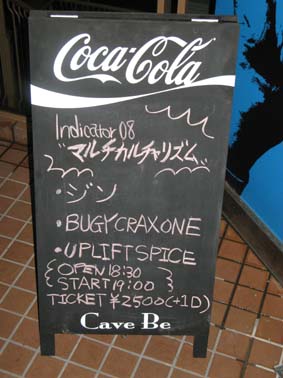 Coca-Cola
Indicator 08
"マルチカルチャリズム"
・ジン
・BUGY CRAXONE
・UPLIFT SPICE
OPEN 18:30
START 19:00
TICKET ¥2500(+1D)
Cave Be